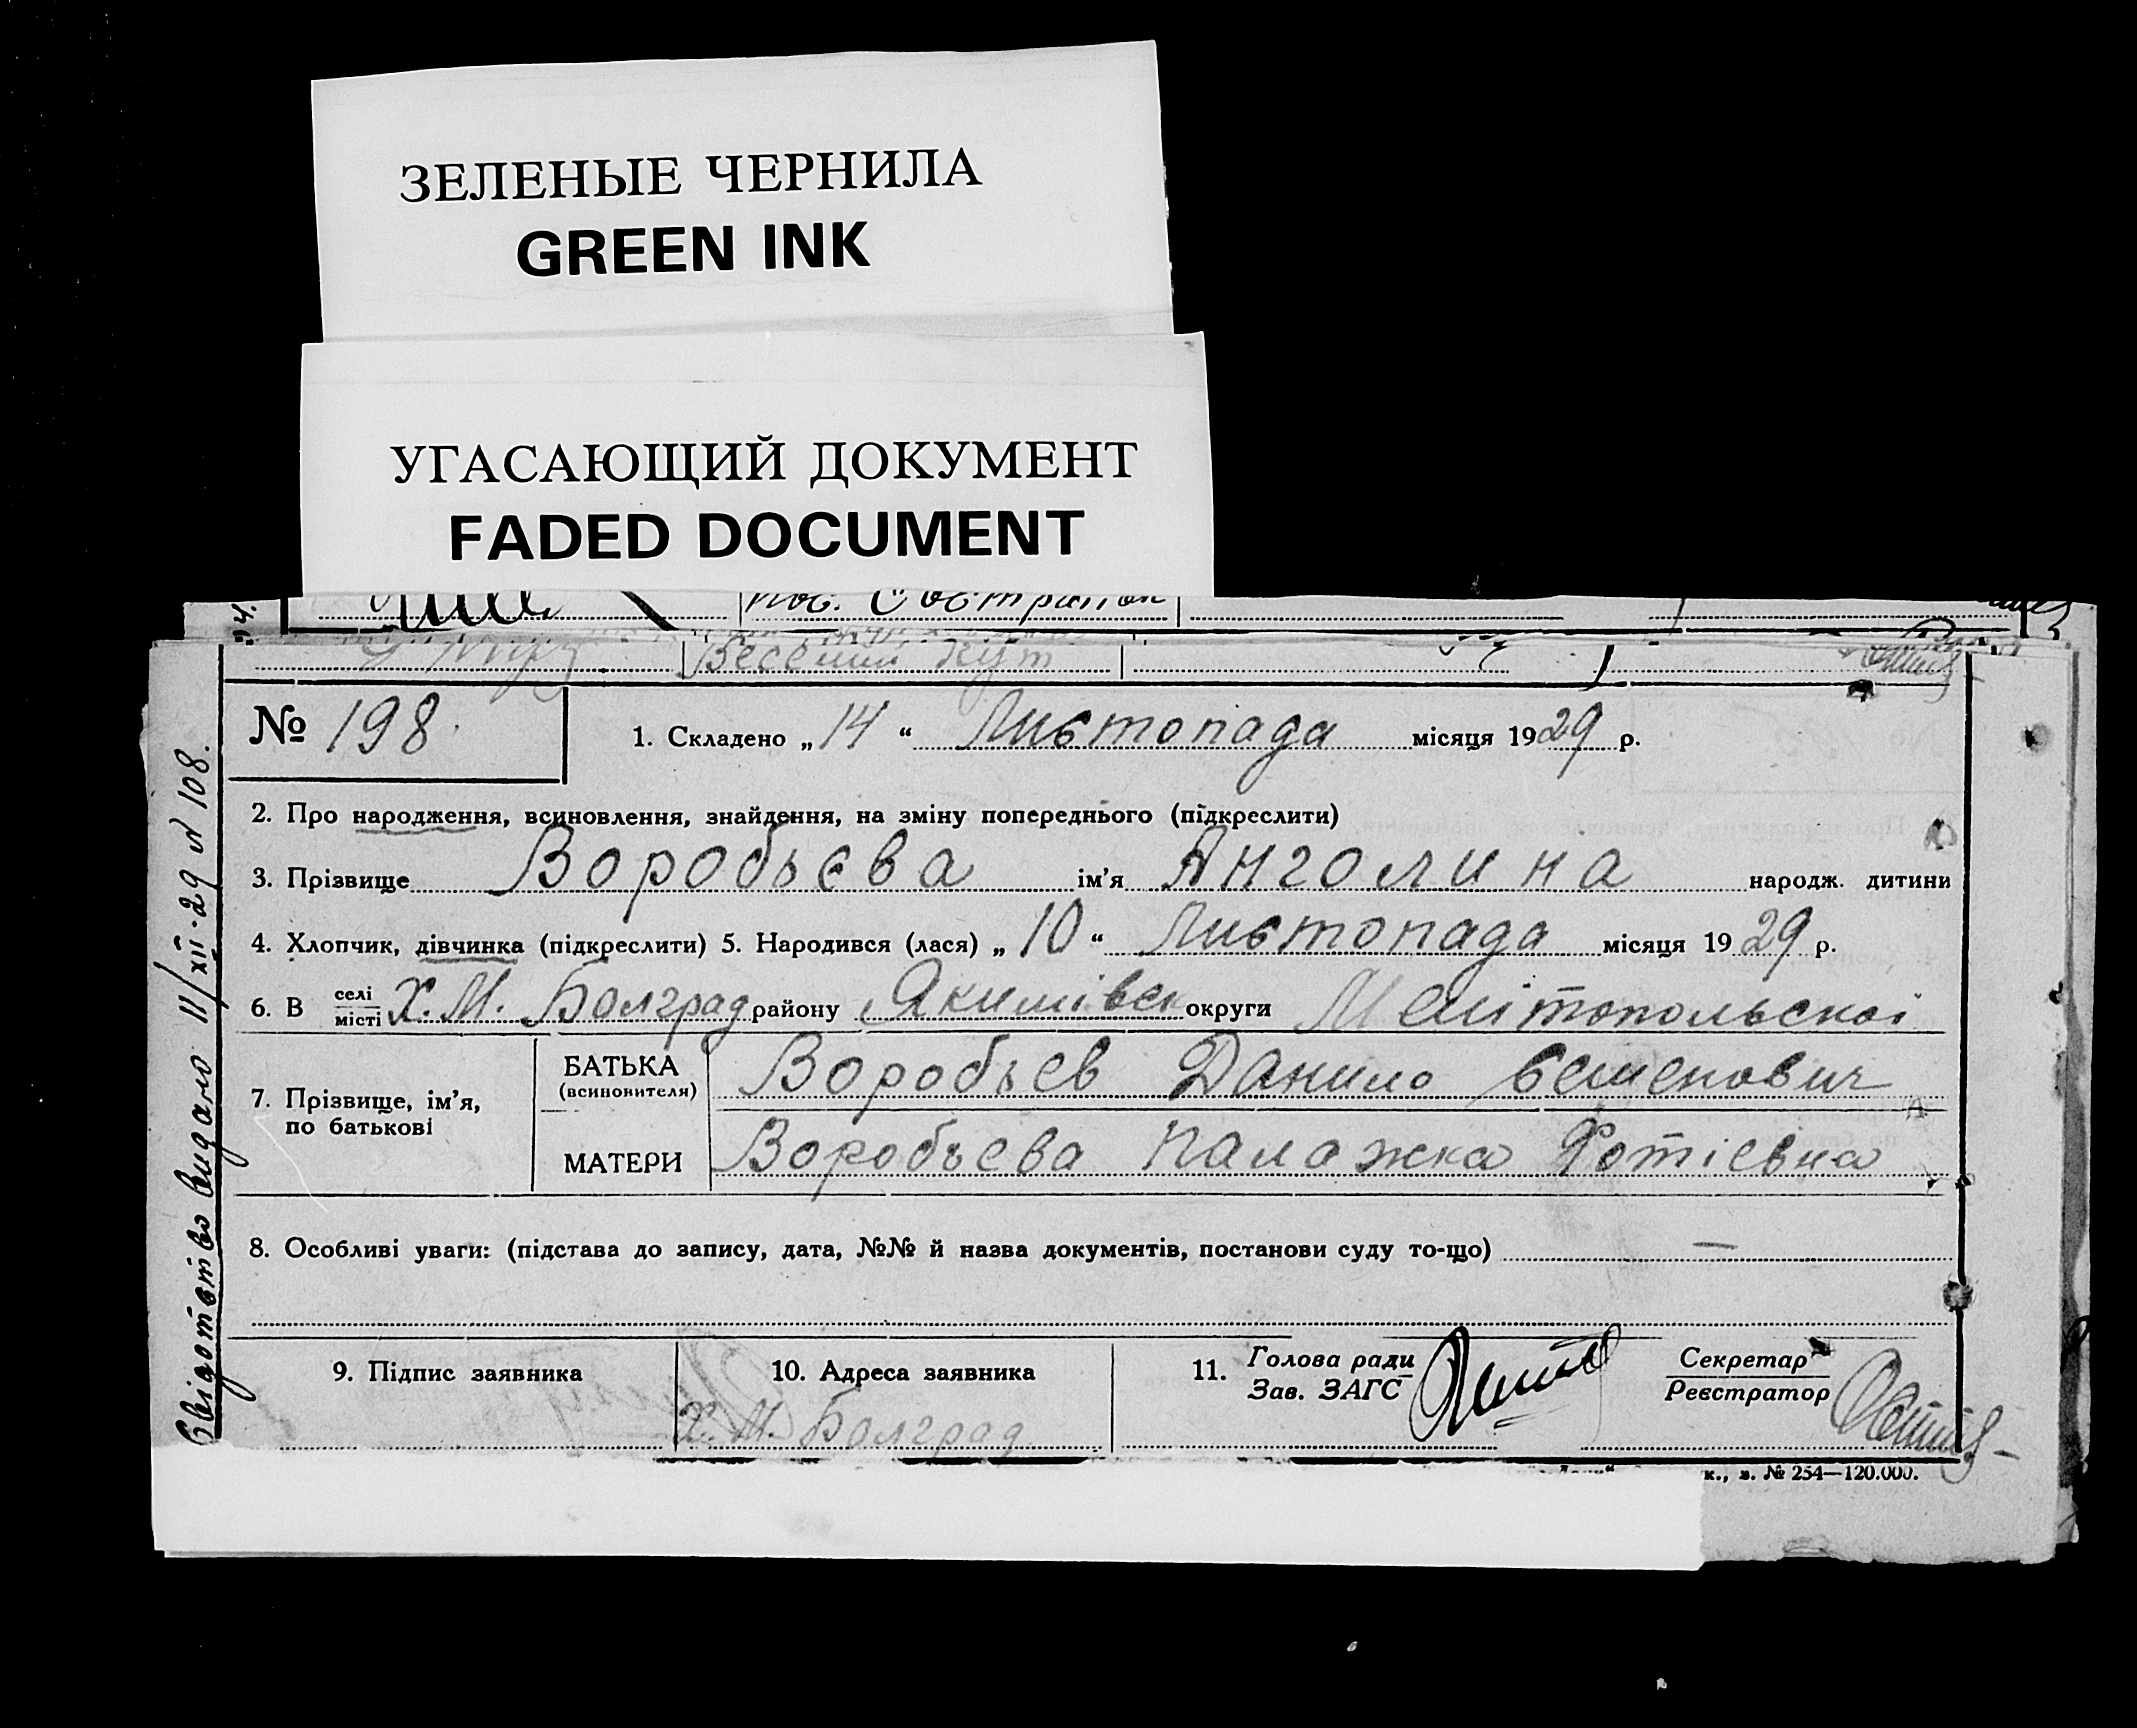 ЗЕЛЕНЫЕ ЧЕРНИЛА
GREEN INK
УГАСАЮЩИЙ ДОКУМЕНТ
FADED DOCUMENT
Веселий Кут
№ 198.
1. Складено „14“ Листопада місяця 1929 р.
2. Про народження, всиновлення, знайдення, на зміну попереднього (підкреслити)
3. Прізвище Воробьєва ім’я Анголина народж. дитини
4. Хлопчик, дівчинка (підкреслити) 5. Народився (лася) „10“ Листопада місяця 1929 р.
6. В селі місті Х. М. Болград району Якимівськ округи Мелітопольскої
7. Прізвище, ім’я, по батькові
БАТЬКА (всиновителя) Воробьєв Данило Семенович
МАТЕРИ Воробьєва Палажка Фотієвна
8. Особливі уваги: (підстава до запису, дата, №№ й назва документів, постанови суду то-що) —
9. Підпис заявника
10. Адреса заявника
Х. М. Болград
11. Голова ради
Зав. ЗАГС
Секретар
Реєстратор
к., з. № 254—120.000.
Свідотство видано 11/XII-29 № 108.